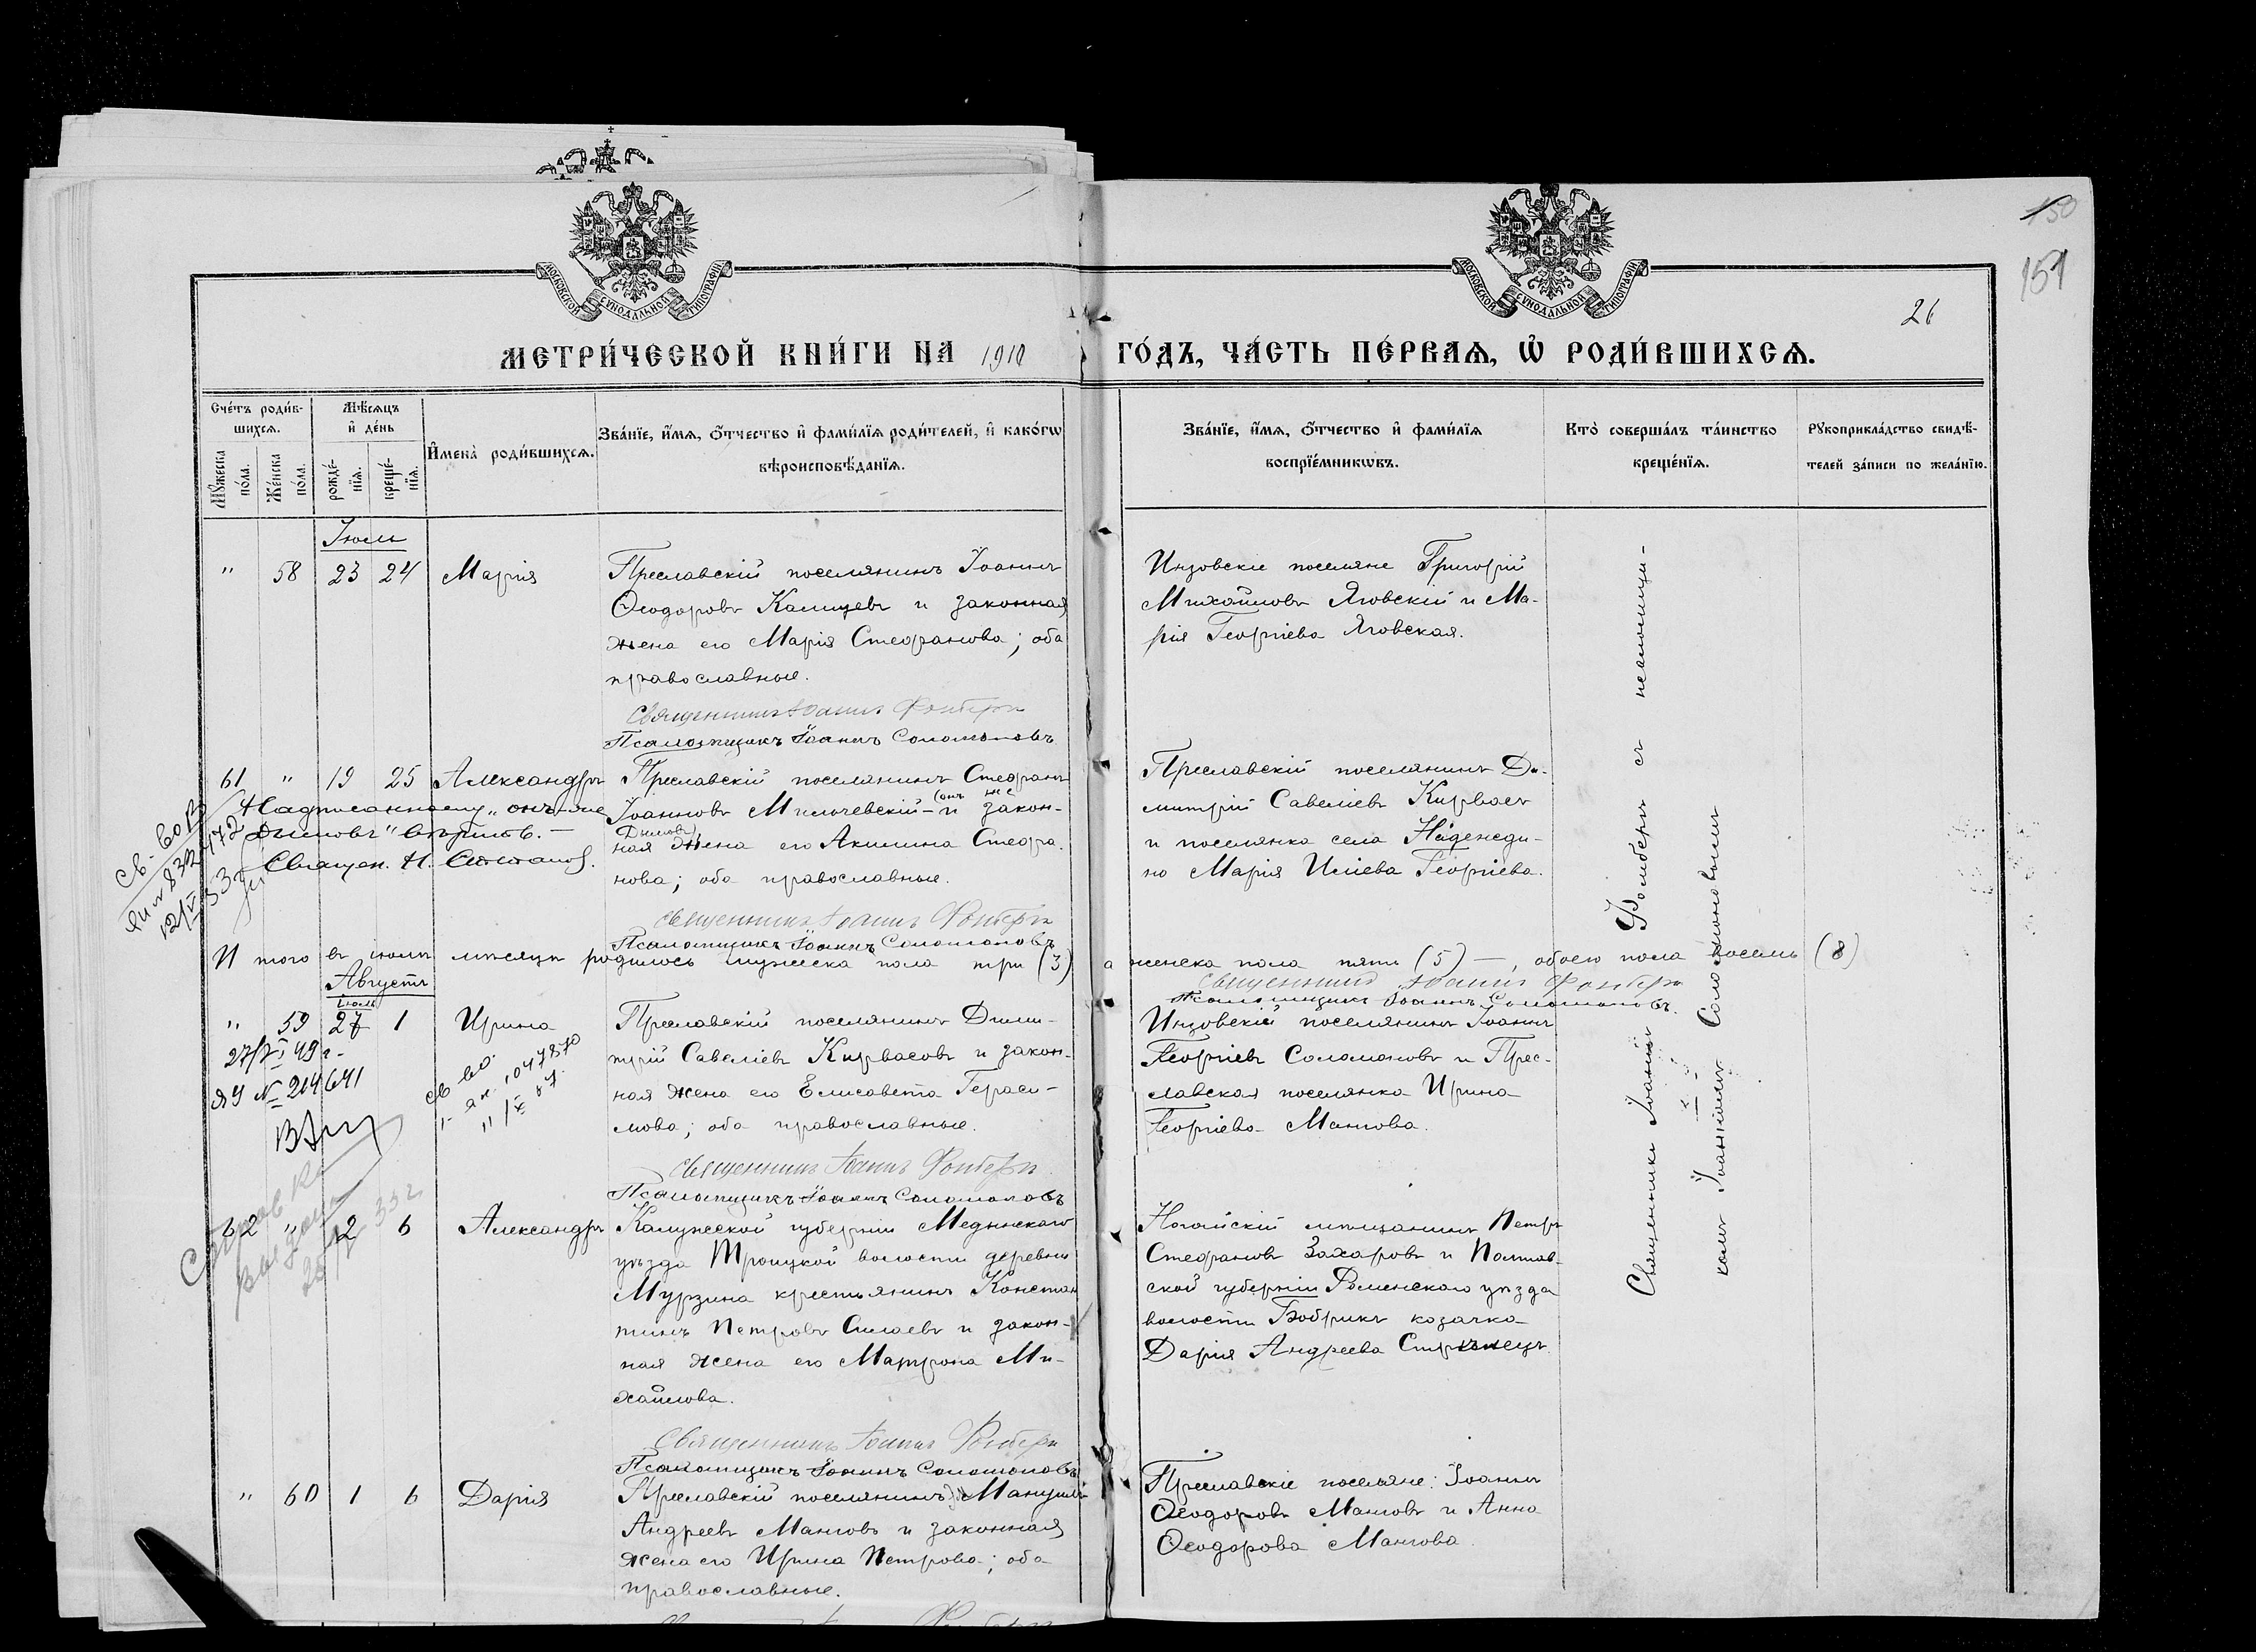 150
151
26
МОСКОВСКОЙ СѴНОДАЛЬНОЙ ТИПОГРАФІИ
МОСКОВСКОЙ СѴНОДАЛЬНОЙ ТИПОГРАФІИ
МЕТРИ́ЧЕСКОЙ КНИ́ГИ НА 1910 ГО́ДЪ, ЧА́СТЬ ПЕ́РВАѦ, Ѡ҆ РОДИ́ВШИХСѦ.
Сче́тъ роди́в-
шихсѧ.
Мꙋ́жеска по́ла.
Же́нска по́ла.
Мѣ́сѧцъ
и҆ де́нь
рожде́-
нїѧ.
креще́-
нїѧ.
И҆мена̀ роди́вшихсѧ.
Зва́нїе, и҆́мѧ, ѻ҆́тчество и҆ фами́лїѧ роди́телей, и҆ како́гѡ
вѣроисповѣ́данїѧ.
Зва́нїе, и҆́мѧ, ѻ҆́тчество и҆ фами́лїѧ
воспрїе́мникѡвъ.
Кто̀ соверша́лъ та́инство
креще́нїѧ.
Рꙋкоприкла́дство свидѣ́-
телей за́писи по жела́нїю.
Іюль
" 58 23 24 Марія
Преславскій поселянинъ Іоаннъ
Ѳеодоровъ Калицевъ и законная
жена его Марія Стефанова; оба
православные.
Священникъ Іоаннъ Фомберг
Псаломщикъ Іоаннъ Соломоновъ
Инзовскіе поселяне Григорій
Михайловъ Яговскій и Ма-
рія Георгіева Яговская.
61 " 19 25 Александръ
Преславскій поселянинъ Стефанъ
Іоанновъ Мильчевскій - (онъ же и закон-
Дымовъ)
ная жена его Акилина Стефа-
нова; оба православные.
Священникъ Іоаннъ Фомберг
Псаломщикъ Іоаннъ Соломоновъ
Надписанному „онъ же
Дымовъ" вѣрить. —
Священ. Н.
Св-во
Преславскій поселянинъ Ди-
митрій Савеліевъ Кирваев
и поселянка села Надежди-
но Марія Иліева Георгіева.
И того въ іюлѣ мѣсяцѣ родилось мужеска пола три (3) а женска пола пяти (5) —, обоего пола восемь (8)
Священникъ Іоаннъ Фомберг
Псаломщикъ Іоаннъ Соломоновъ.
Августъ
іюль
" 59 27 1 Ирина
Преславскій поселянинъ Дими-
трій Савеліевъ Кирвасовъ и закон-
ная жена его Елисавета Гераси-
мова; оба православные.
Священникъ Іоаннъ Фомберг
Псаломщикъ Іоаннъ Соломоновъ
ЯУ № 214641
Св во
Инзовскій поселянинъ Іоаннъ
Георгіевъ Соломоновъ и Прес-
лавская поселянка Ирина
Георгіева Мангова.
Справка
выдана
62 " 12 6 Александръ
Калужской губерніи Медынскаго
уѣзда Троицкой волости деревни
Мурзина крестьянинъ Констан
тинъ Петровъ Силаевъ и закон-
ная жена его Матрона Ми-
хайлова.
Священникъ Іоаннъ Фомберг
Псаломщикъ Іоаннъ Соломоновъ
Ногайскій мѣщанинъ Петръ
Стефановъ Захаровъ и Полтав-
ской губерніи Роменскаго уѣзда
волости Бобрикъ козачка
Дарія Андреева Стрѣлецъ
" 60 1 6 Дарія
Преславскій поселянинъ Мануилъ
Андреевъ Манговъ и законная
жена его Ирина Петрова; оба
православные.
Преславскіе поселяне: Іоаннъ
Ѳеодоровъ Манговъ и Анна
Ѳеодорова Мангова.
Священникъ Іоаннъ Фомбергъ съ псаломщи-
комъ Іоанномъ Соломоновымъ